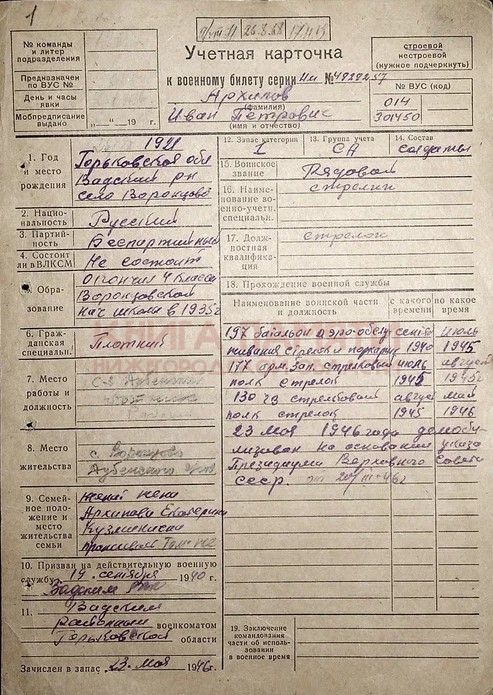 1
№ команды
и литер
подразделения
Предназначен
по ВУС №
День и часы
явки
Мобпредписание
выдано „ “ 19 г.
Учетная карточка
к военному билету серии Ии № 4828257
Архипов
(фамилия)
Иван Петрович
(имя и отчество)
строевой
нестроевой
(нужное подчеркнуть)
№ ВУС (код)
014
301450
1. Год
и место
рождения
1921
Горьковской обл
Вадский рн
село Воронцово
2. Национальность
Русский
3. Партийность
Беспартийный
4. Состоит
ли в ВЛКСМ
Не состоит
5. Образование
Окончил 4 класса
Воронцовской
нач школы в 1935г
6. Гражданская
специальн.
Плотник
7. Место
работы и
должность
8. Место
жительства
с. Воронцово
9. Семейное положение и
место
жительства
семьи
Женат жена
Архипова Екатерина
Кузминисна
проживает
10. Призван на действительную военную
службу 14 сентября 1940 г.
Вадским РВК
11. Вадским
районным военкоматом
Горьковской области
Зачислен в запас 23 мая 1946 г.
12. Запас категории
1
13. Группа учета
СА
14. Состав
солдаты
15. Воинское
звание
Рядовой
16. Наименование военно-учетн.
специальн.
стрелки
17. Должностная
квалификация
стрелок
18. Прохождение военной службы
Наименование воинской части
и должность
с какого
времени
по какое
время
197 батальон аэро-обслу- сентяб июль
живания стрелок и пожарник 1940 1945
177 арм. зап. стрелковый июль август
полк стрелок 1945 1945г
130 гв стрелковой август май
полк стрелок 1945 1946
23 мая 1946 года демоби-
лизован на основании указа
Президиума Верховного Совета
СССР. от 20/III-46г
19. Заключение
командования
части об использовании
в военное время